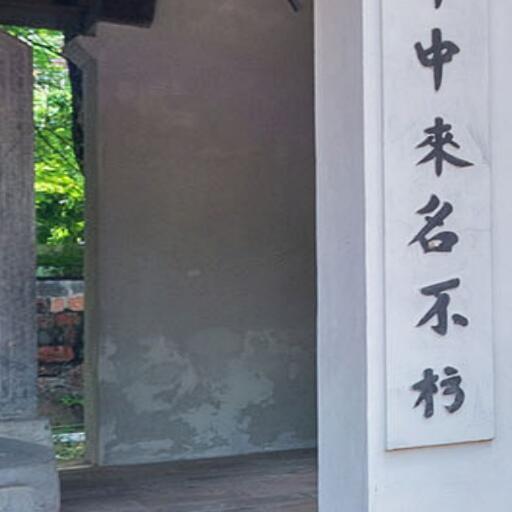 中來名不朽